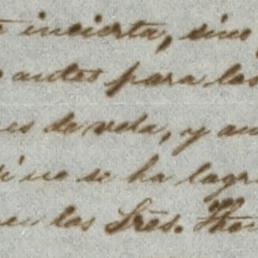 incierta, sino
antes para las
es de vela, y au
no se ha logr
las Sres. Thom